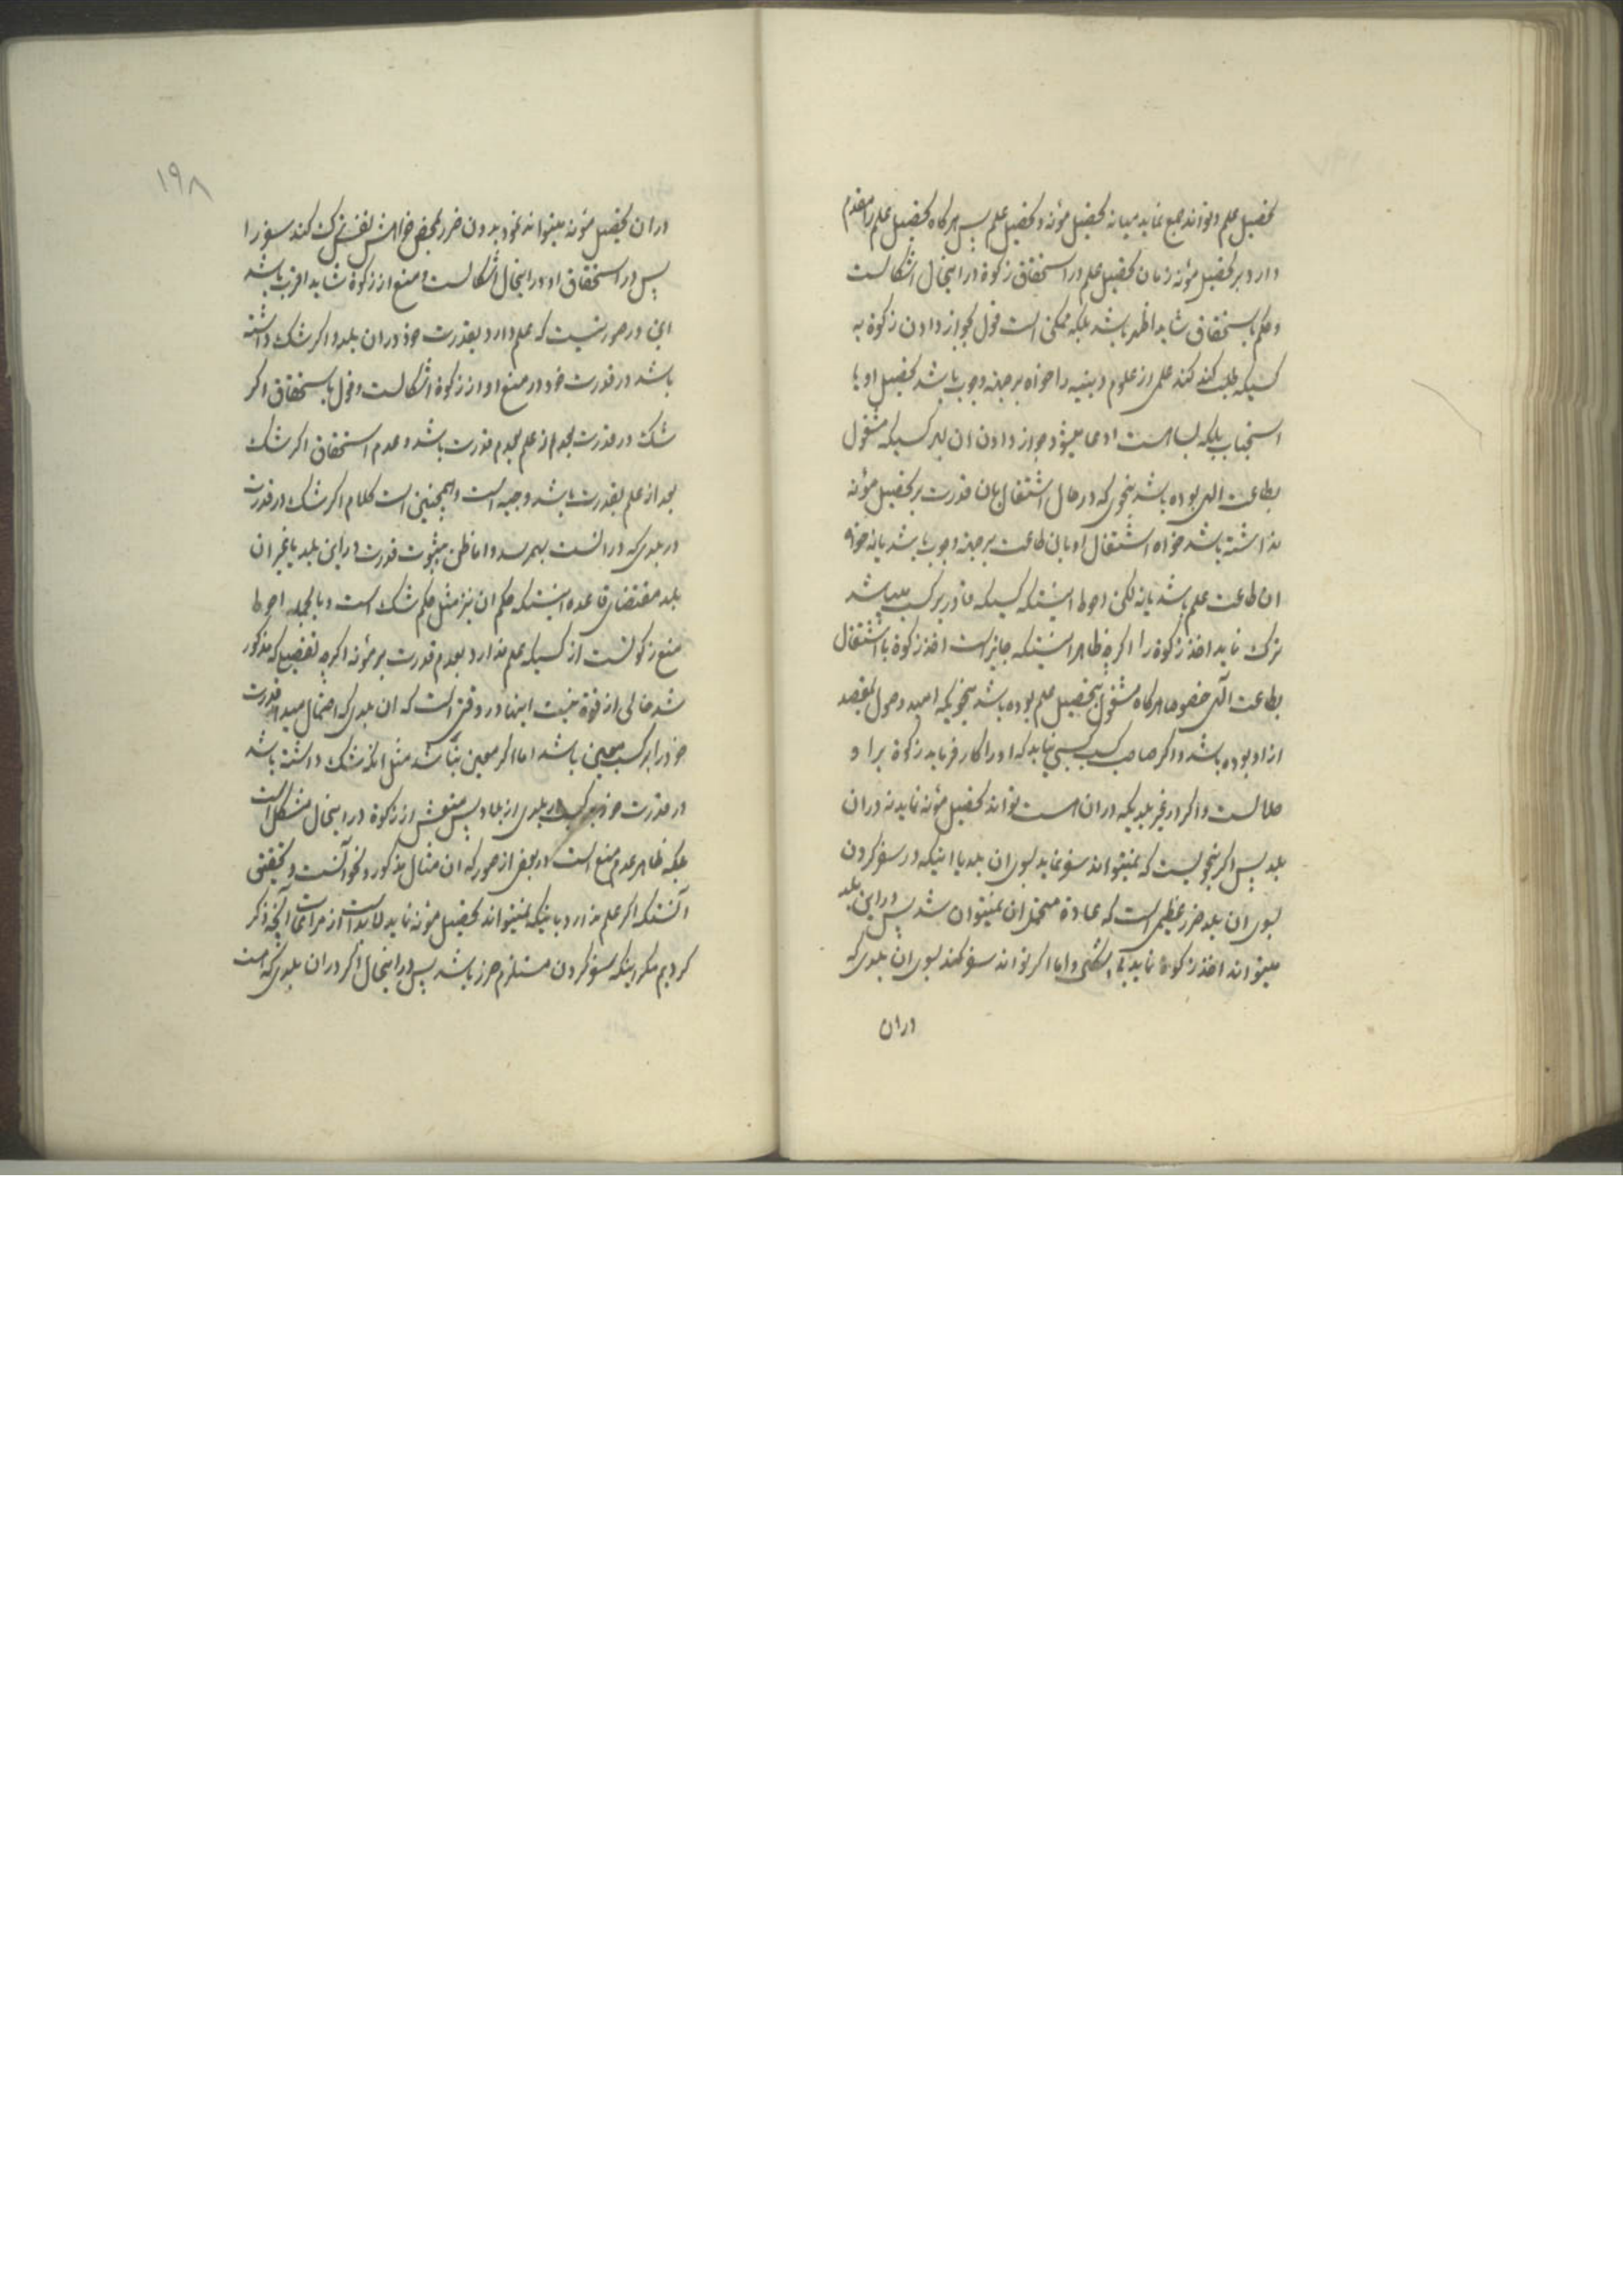 تحصیل علم و تواند جمع نماید میانه تحصیل مؤنه و تحصیل علم پس هرکاه تحصیل علم را مقدم
دارد بر تحصیل مؤنه زمان تحصیل علم در استحقاق زکوة در اینحال اشکالست
و حکم باستحقاق شاید اظهر باشد بلکه ممکن است قول بجواز دادن زکوة به
کسیکه طلب کند علمی از علوم دینیه را خواه بر جهته وجوب باشد تحصیل او یا
استحباب بلکه بسا هست ادعا میشود جواز دادن ان بهر کسیکه مشغول
بطاعت الهی بوده باشد بنحوی که در حال اشتغال بان قدرت بر تحصیل مؤنه
نداشته باشد خواه اشتغال او بان طاعت بر جهته وجوب باشد یا نه خواه
ان طاعت علم باشد یا نه لکن احوط اینستکه کسیکه قادر بر کسب میباشد
ترک نماید اخذ زکوة را اکرچه ظاهر اینستکه جایز است اخذ زکوة با اشتغال
بطاعت الهی خصوصا هرکاه مشغول بتحصیل علم بوده باشد بنحویکه امید وصول بمقصد
از او بوده باشد و اکر صاحب کسب کسبی نیابد که او را کار فرماید زکوة بر او
حلالست و اکر در غیر بلدیکه در ان هست تواند تحصیل مؤنه نماید نه در ان
بلد پس اکر بنحویست که نمیتواند سفر نماید بسوی ان بلد یا اینکه در سفر کردن
بسوی ان بلد ضرر عظیمی است که عادة متحمل ان نمیتوان شد پس در این بلد
میتواند اخذ زکوة نماید و اما اکر تواند سفر کند بسوی ان بلدی که
دران
۱۹۸
در ان تحصیل مؤنه میتواند نمود بدون ضرر بمحض خواهش نفس ترک کند سفر را
پس در استحقاق او در اینحال اشکالست و منع از زکوة شاید اقرب باشد
این در صورتیست که علم دارد بقدرت خود در ان بلد و اکر شک داشته
باشد در قدرت خود در منع او از زکوة اشکالست و قول باستحقاق اکر
شک در قدرت بعد از علم بعدم قدرت باشد و عدم استحقاق اکر شک
بعد از علم بقدرت باشد وجیه است و همچنین است کلام اکر شک در قدرت
در بلدی که در انست بهمرسد و اما ظن بثبوت قدرت در این بلد یا غیر ان
بلد مقتضای قاعده اینستکه حکم ان نیز مثل حکم شک است و بالجمله احوط
منع زکوتست از کسیکه علم ندارد بعدم قدرت بر مؤنه اکرچه تفصیلی که مذکور
شد خالی از قوة نیست اینها در وقتی است که ان بلدی که احتمال میدهد قدرت
خود را بر کسب معین باشد اما اکر معین نباشد مثل انکه شک داشته باشد
در قدرت خود بر کسب در بلدی از بلاد پس منعش از زکوة در اینحال مشکل است
بلکه ظاهر عدم منع است در بعض از صور که ان مثال مذکور و نحو آنست و تحقیق
آنستکه اکر علم ندارد باینکه نمیتواند تحصیل مؤنه نماید لابد است از مراعات آنچه ذکر
کردیم مکر اینکه سفر کردن مستلزم ضرر باشد پس در اینحال اکر در ان بلدی که هست